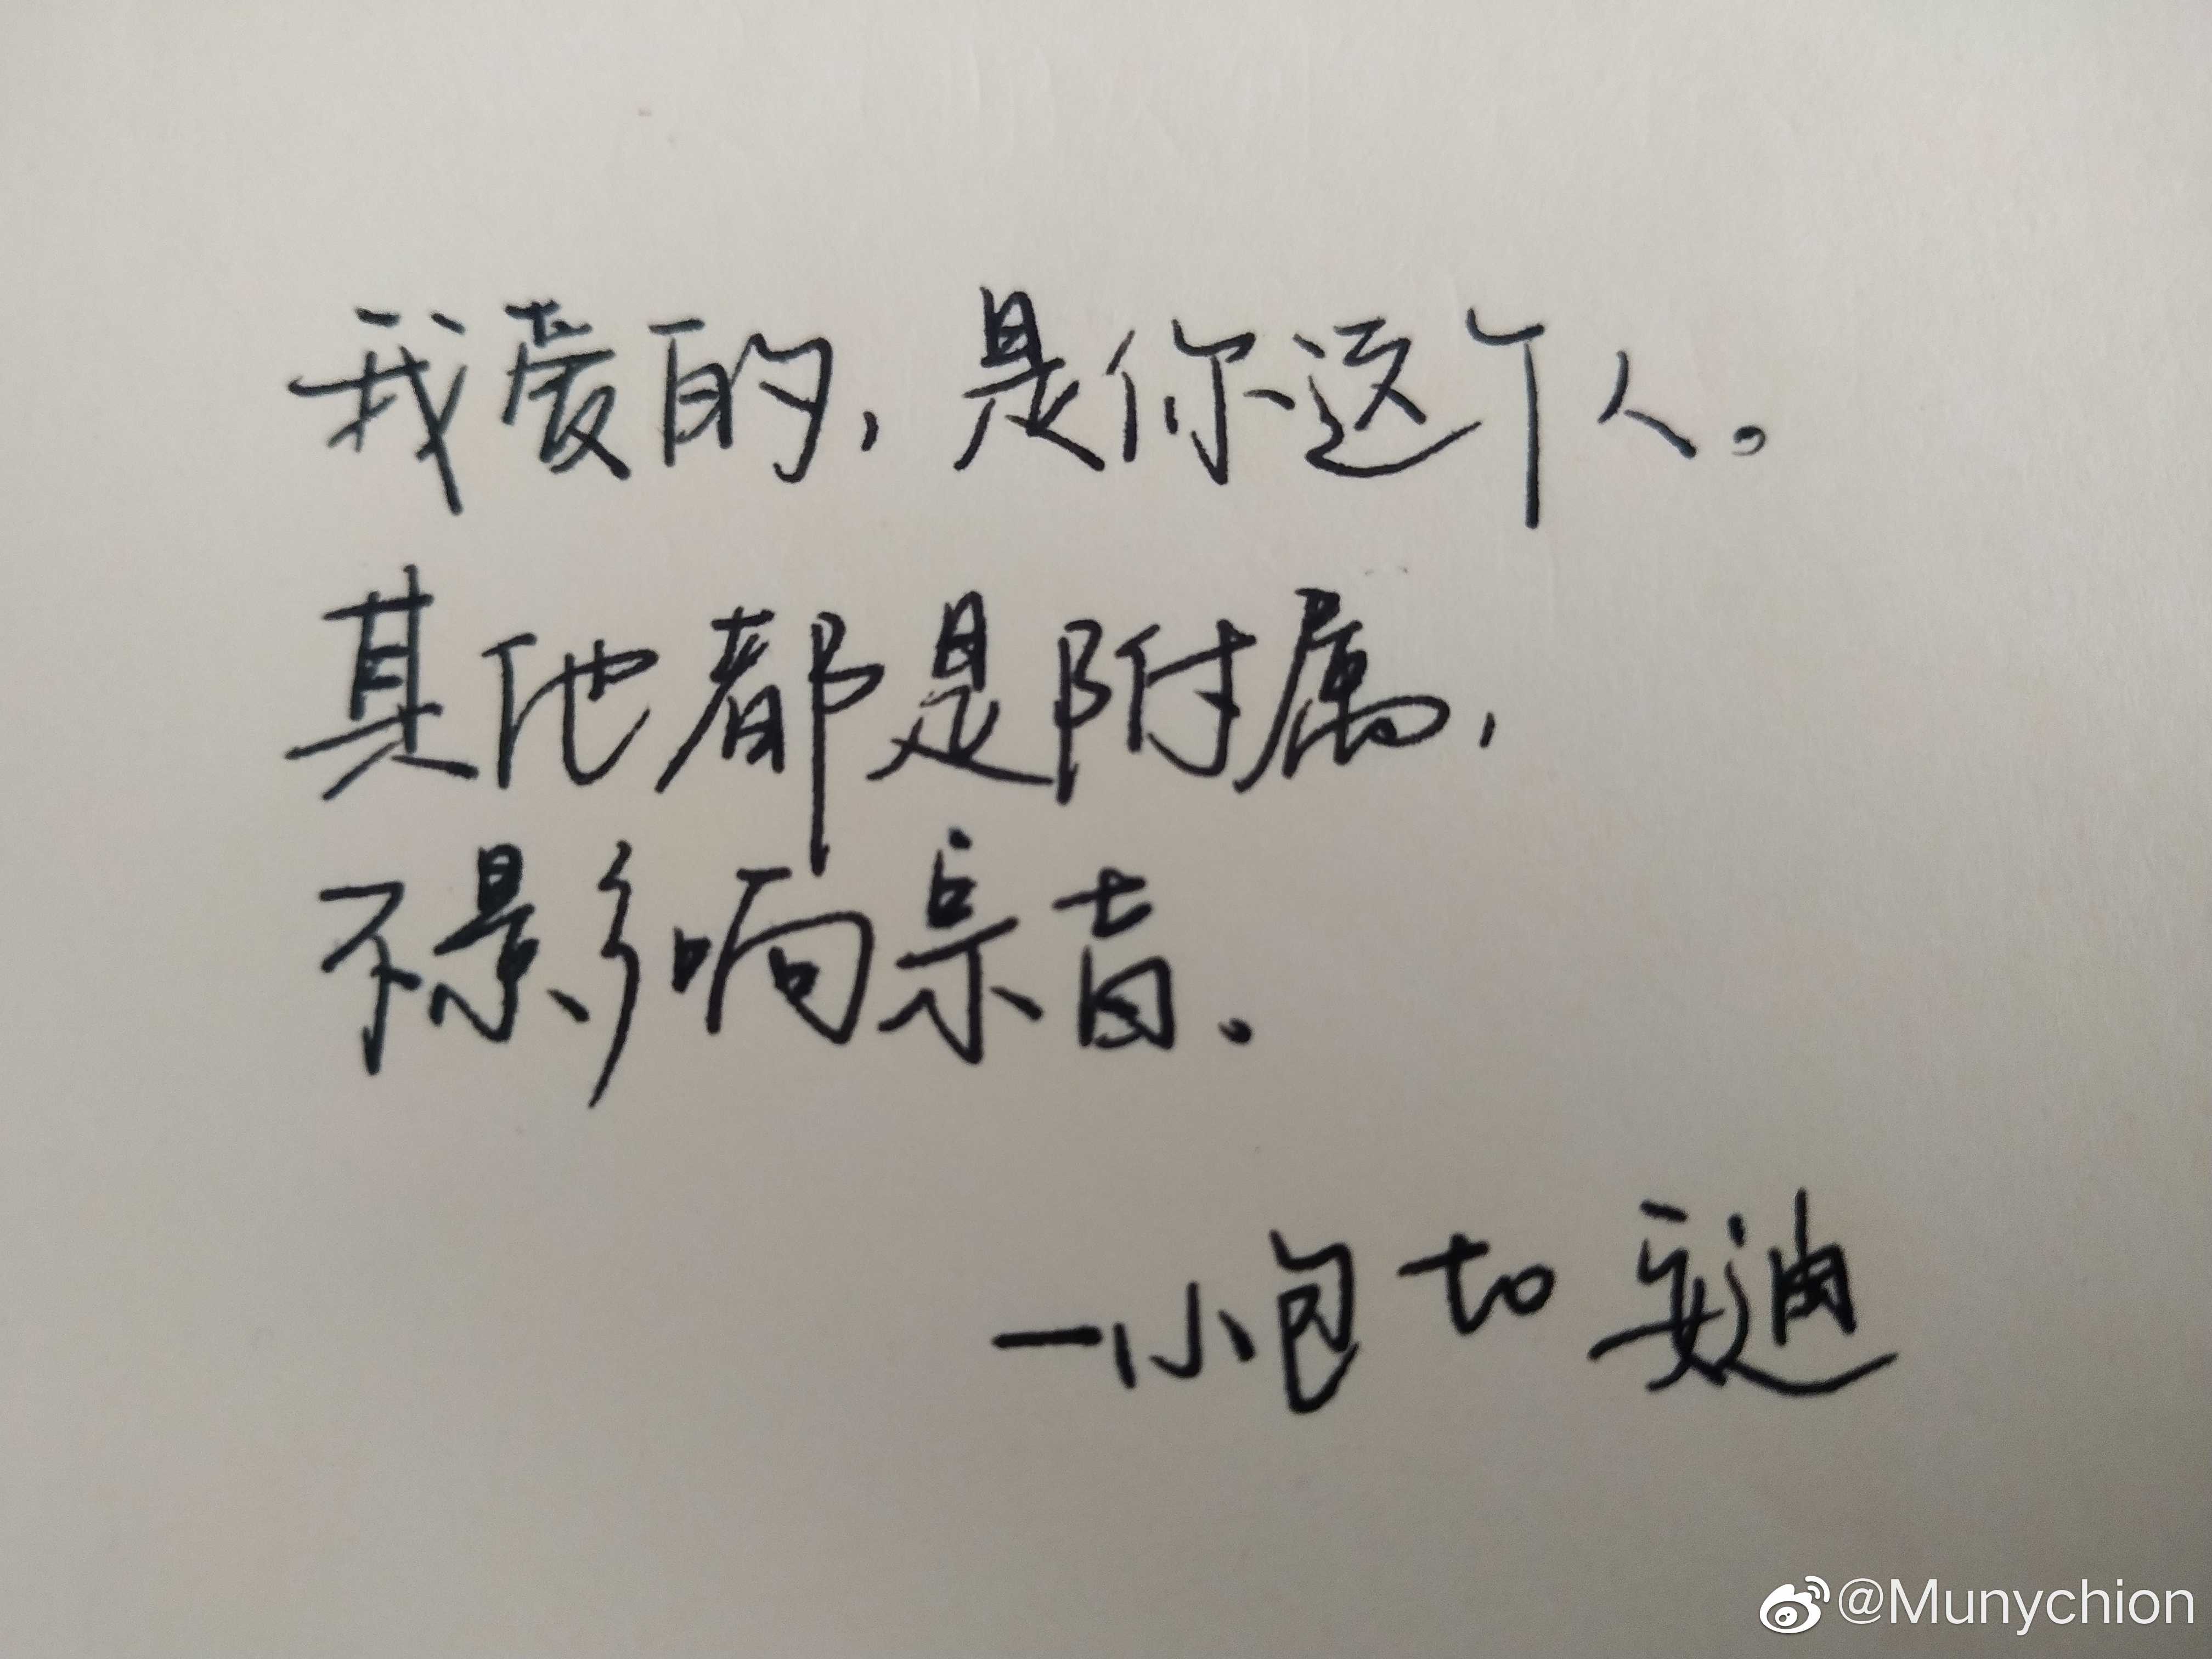 我爱的，是你这个人。
其他都是附属，
不影响宗旨。
—小包 to 安迪
@Munychion